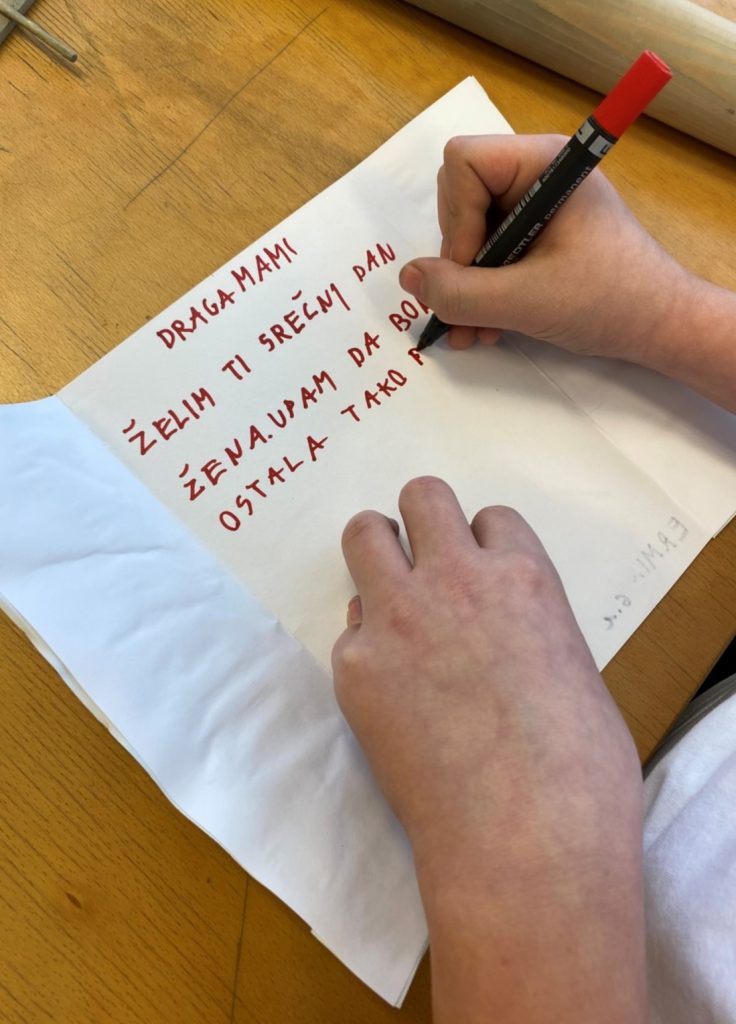 DRAGA MAMI
ŽELIM TI SREČNI DAN
ŽENA. UPAM DA
OSTALA TAKO
STAEDTLER permanent